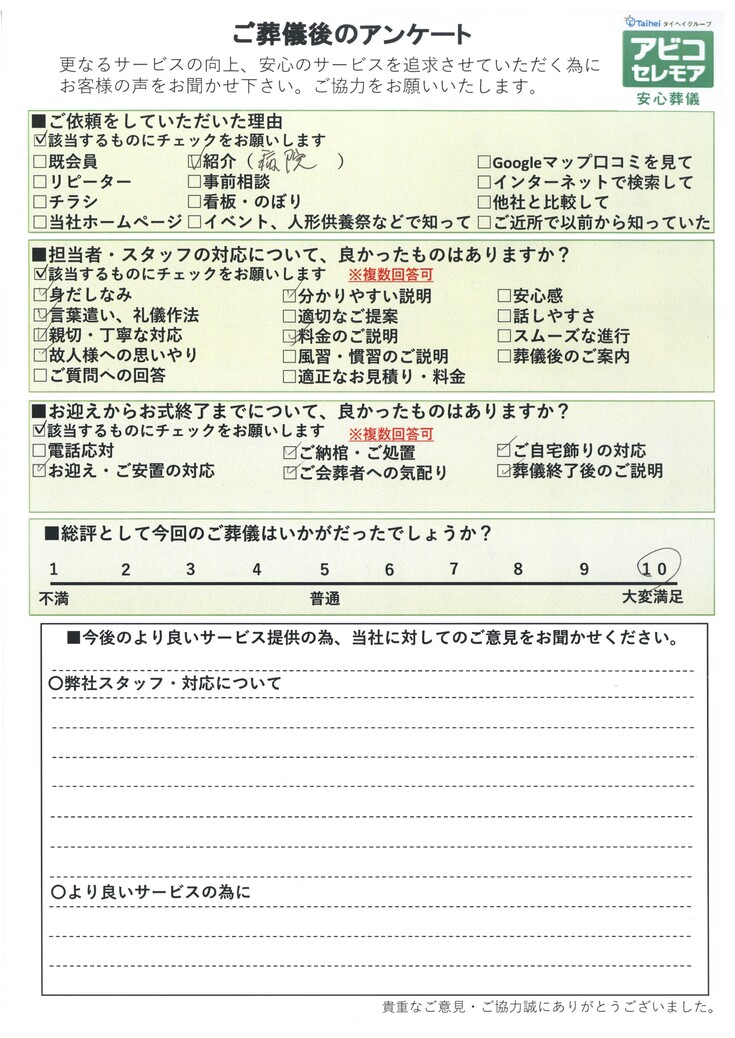 ご葬儀後のアンケート
Taihei タイヘイグループ
アビコ
セレモア
安心葬儀
更なるサービスの向上、安心のサービスを追求させていただく為に
お客様の声をお聞かせ下さい。ご協力をお願いいたします。
■ご依頼をしていただいた理由
☑該当するものにチェックをお願いします
□既会員 ☑紹介（病院　） □Googleマップ口コミを見て
□リピーター □事前相談 □インターネットで検索して
□チラシ □看板・のぼり □他社と比較して
□当社ホームページ □イベント、人形供養祭などで知って □ご近所で以前から知っていた
■担当者・スタッフの対応について、良かったものはありますか？
☑該当するものにチェックをお願いします ※複数回答可
☑身だしなみ ☑分かりやすい説明 □安心感
☑言葉遣い、礼儀作法 □適切なご提案 □話しやすさ
☑親切・丁寧な対応 ☑料金のご説明 □スムーズな進行
☑故人様への思いやり □風習・慣習のご説明 □葬儀後のご案内
□ご質問への回答 □適正なお見積り・料金
■お迎えからお式終了までについて、良かったものはありますか？
☑該当するものにチェックをお願いします ※複数回答可
□電話応対 ☑ご納棺・ご処置 ☑ご自宅飾りの対応
☑お迎え・ご安置の対応 ☑ご会葬者への気配り ☑葬儀終了後のご説明
■総評として今回のご葬儀はいかがだったでしょうか？
1 2 3 4 5 6 7 8 9 10
不満 普通 大変満足
■今後のより良いサービス提供の為、当社に対してのご意見をお聞かせください。
○弊社スタッフ・対応について
○より良いサービスの為に
貴重なご意見・ご協力誠にありがとうございました。